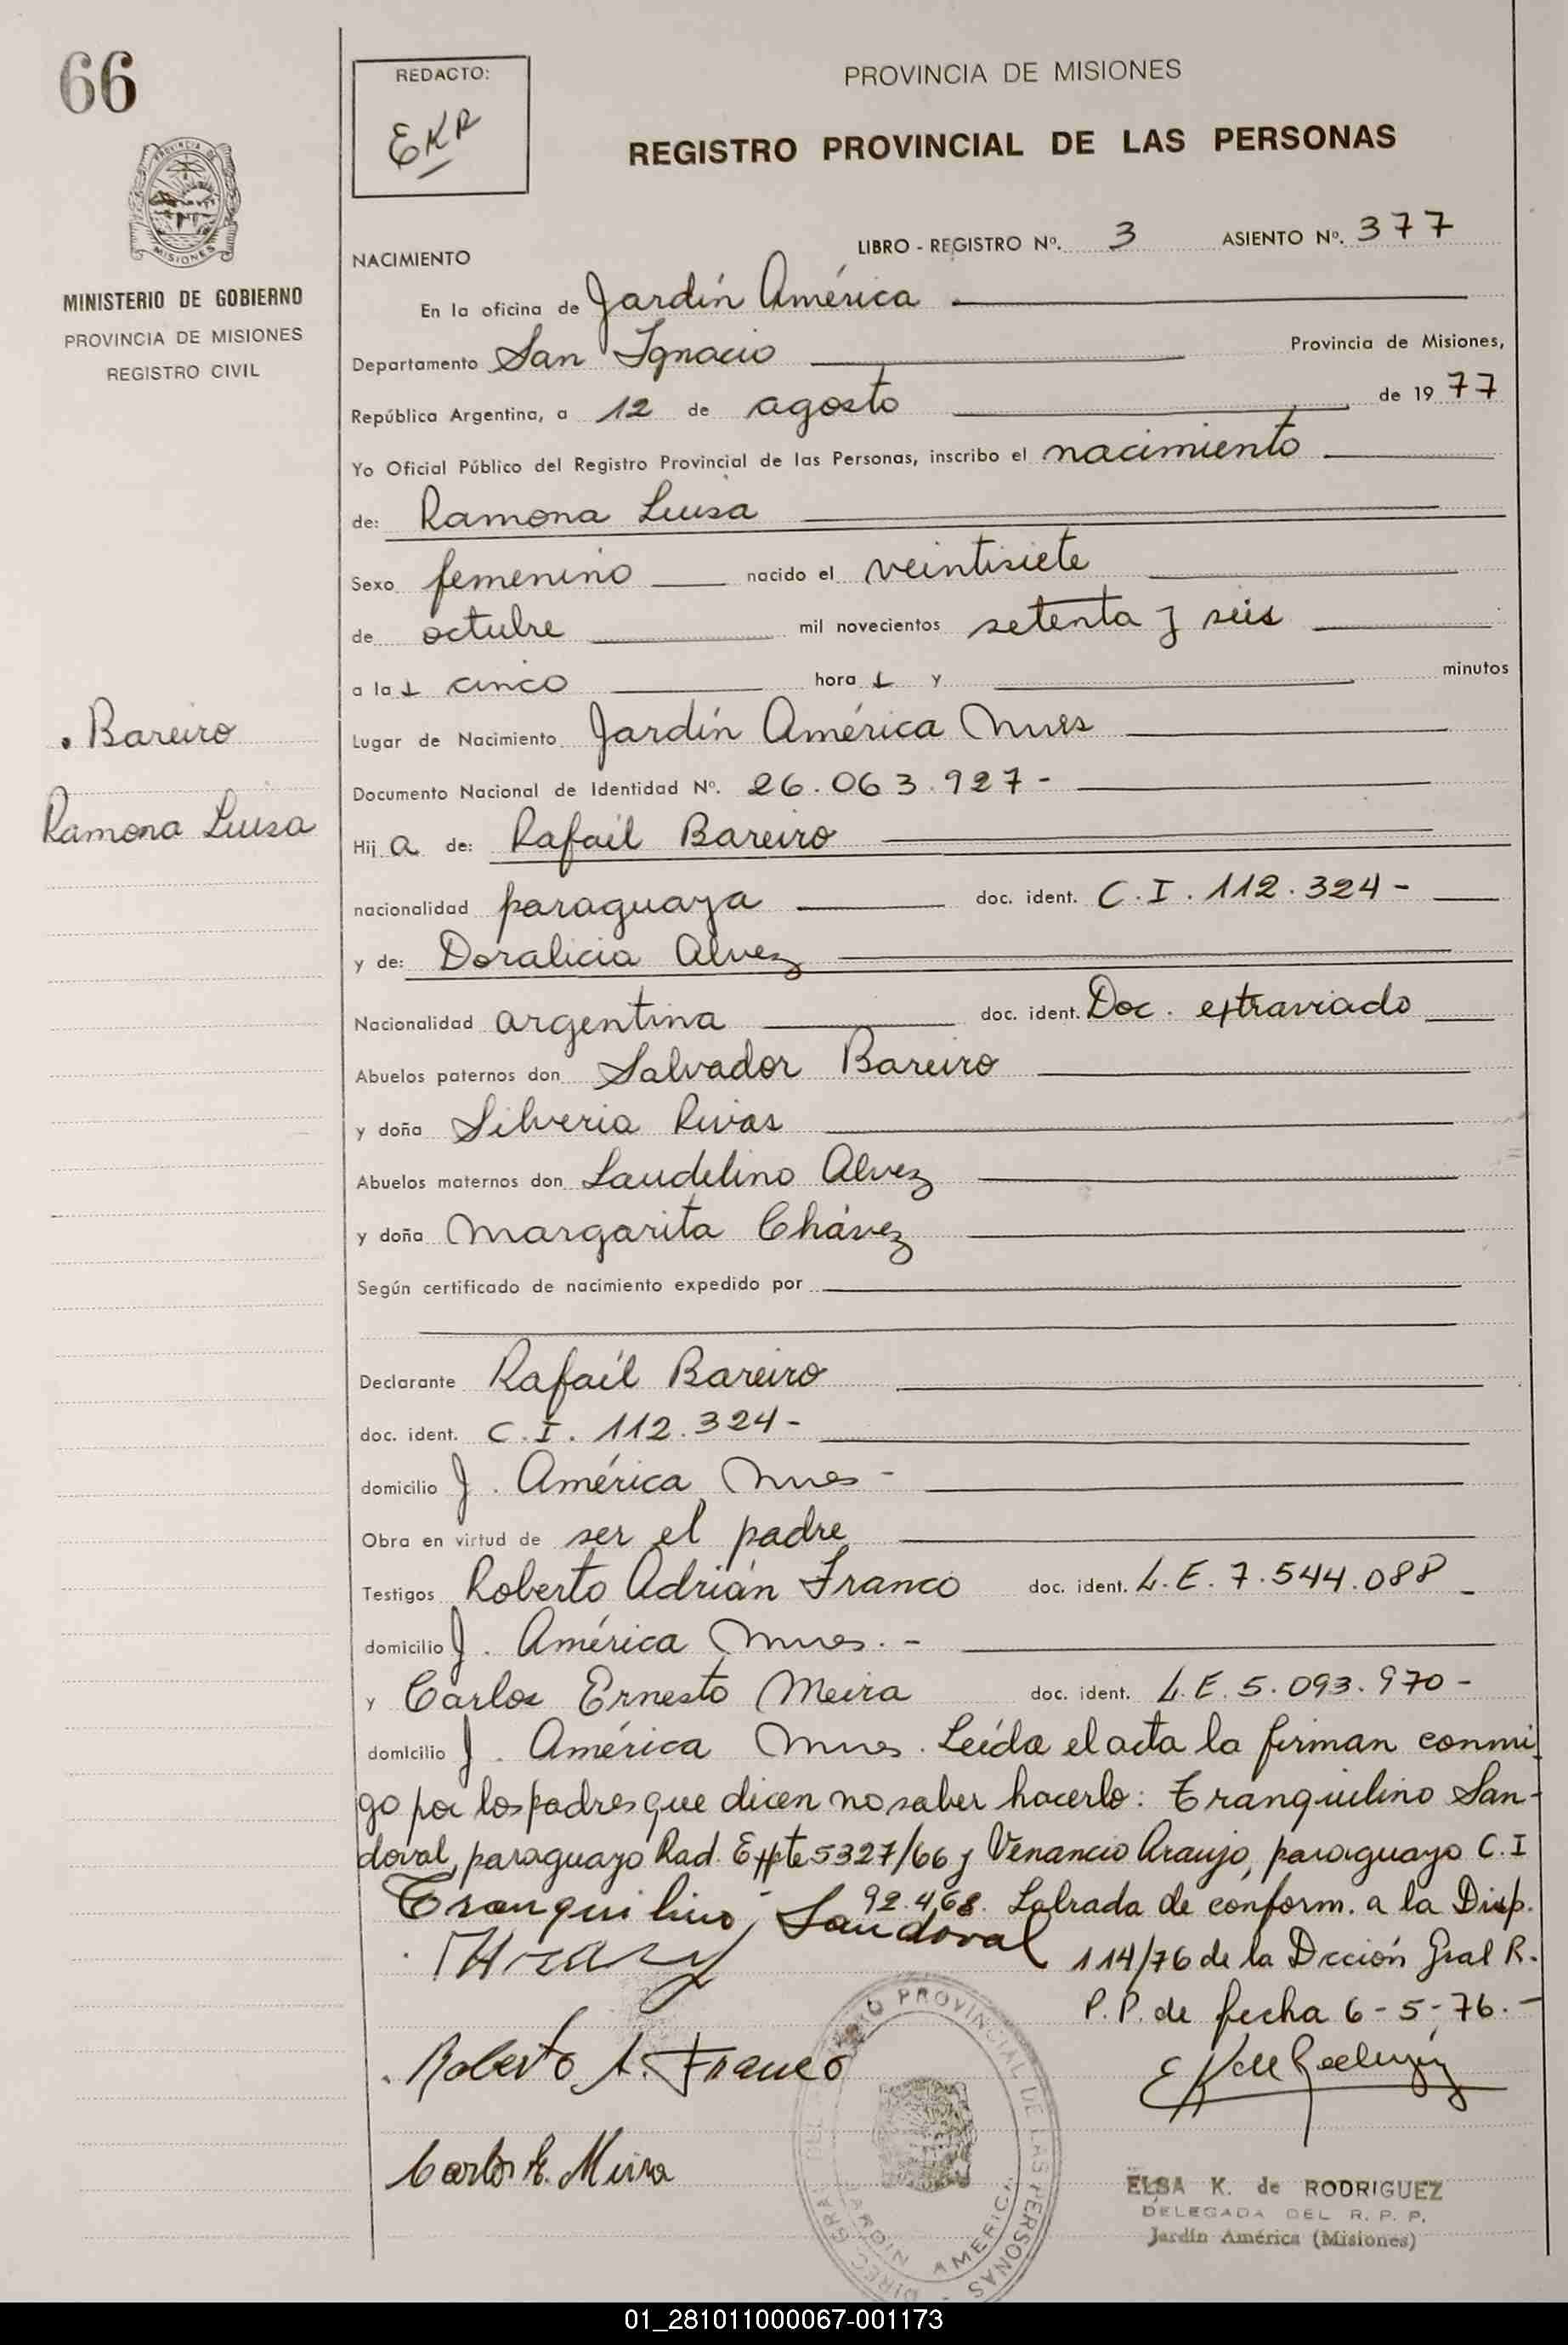 66
REDACTO:
EKR
PROVINCIA DE MISIONES
REGISTRO PROVINCIAL DE LAS PERSONAS
PROVINCIA DE
MISIONES
MINISTERIO DE GOBIERNO
PROVINCIA DE MISIONES
REGISTRO CIVIL
LIBRO - REGISTRO Nº. 3 ASIENTO Nº. 377
NACIMIENTO
En la oficina de Jardín América
Departamento San Ignacio Provincia de Misiones,
República Argentina, a 12 de agosto de 19 77
Yo Oficial Público del Registro Provincial de las Personas, inscribo el nacimiento
de: Ramona Luisa
Sexo femenino nacido el veintisiete
de octubre mil novecientos setenta y seis
a las cinco horas y minutos
. Bareiro
Ramona Luisa
Lugar de Nacimiento Jardín América Mnes
Documento Nacional de Identidad Nº. 26.063.927-
Hij a de: Rafaíl Bareiro
nacionalidad paraguaya doc. ident. C.I. 112.324-
y de: Doralicia Alvez
Nacionalidad argentina doc. ident. Doc. extraviado
Abuelos paternos don Salvador Bareiro
y doña Silveria Rivas
Abuelos maternos don Laudelino Alvez
y doña Margarita Chávez
Según certificado de nacimiento expedido por
Declarante Rafaíl Bareiro
doc. ident. C.I. 112.324-
domicilio J. América Mnes-
Obra en virtud de ser el padre
Testigos Roberto Adrián Franco doc. ident. L.E. 7.544.088
domicilio J. América Mnes.-
y Carlos Ernesto Meira doc. ident. L.E. 5.093.970-
domicilio J. América Mnes. Leída el acta la firman conmi
go por los padres que dicen no saber hacerlo: Tranquilino San-
doval, paraguayo Rad. Expte 5327/66 y Venancio Araujo, paraguayo C.I
92.468. Labrada de conform. a la Disp.
Tranquilino Sandoval
114/76 de la Dcción Gral R.
P.P. de fecha 6-5-76.-
Roberto A. Franco
Carlos E. Meira
DIREC. GRAL DEL REGISTRO PROVINCIAL DE LAS PERSONAS
JARDIN AMERICA
ELSA K. de RODRIGUEZ
DELEGADA DEL R. P. P.
Jardín América (Misiones)
01_281011000067-001173